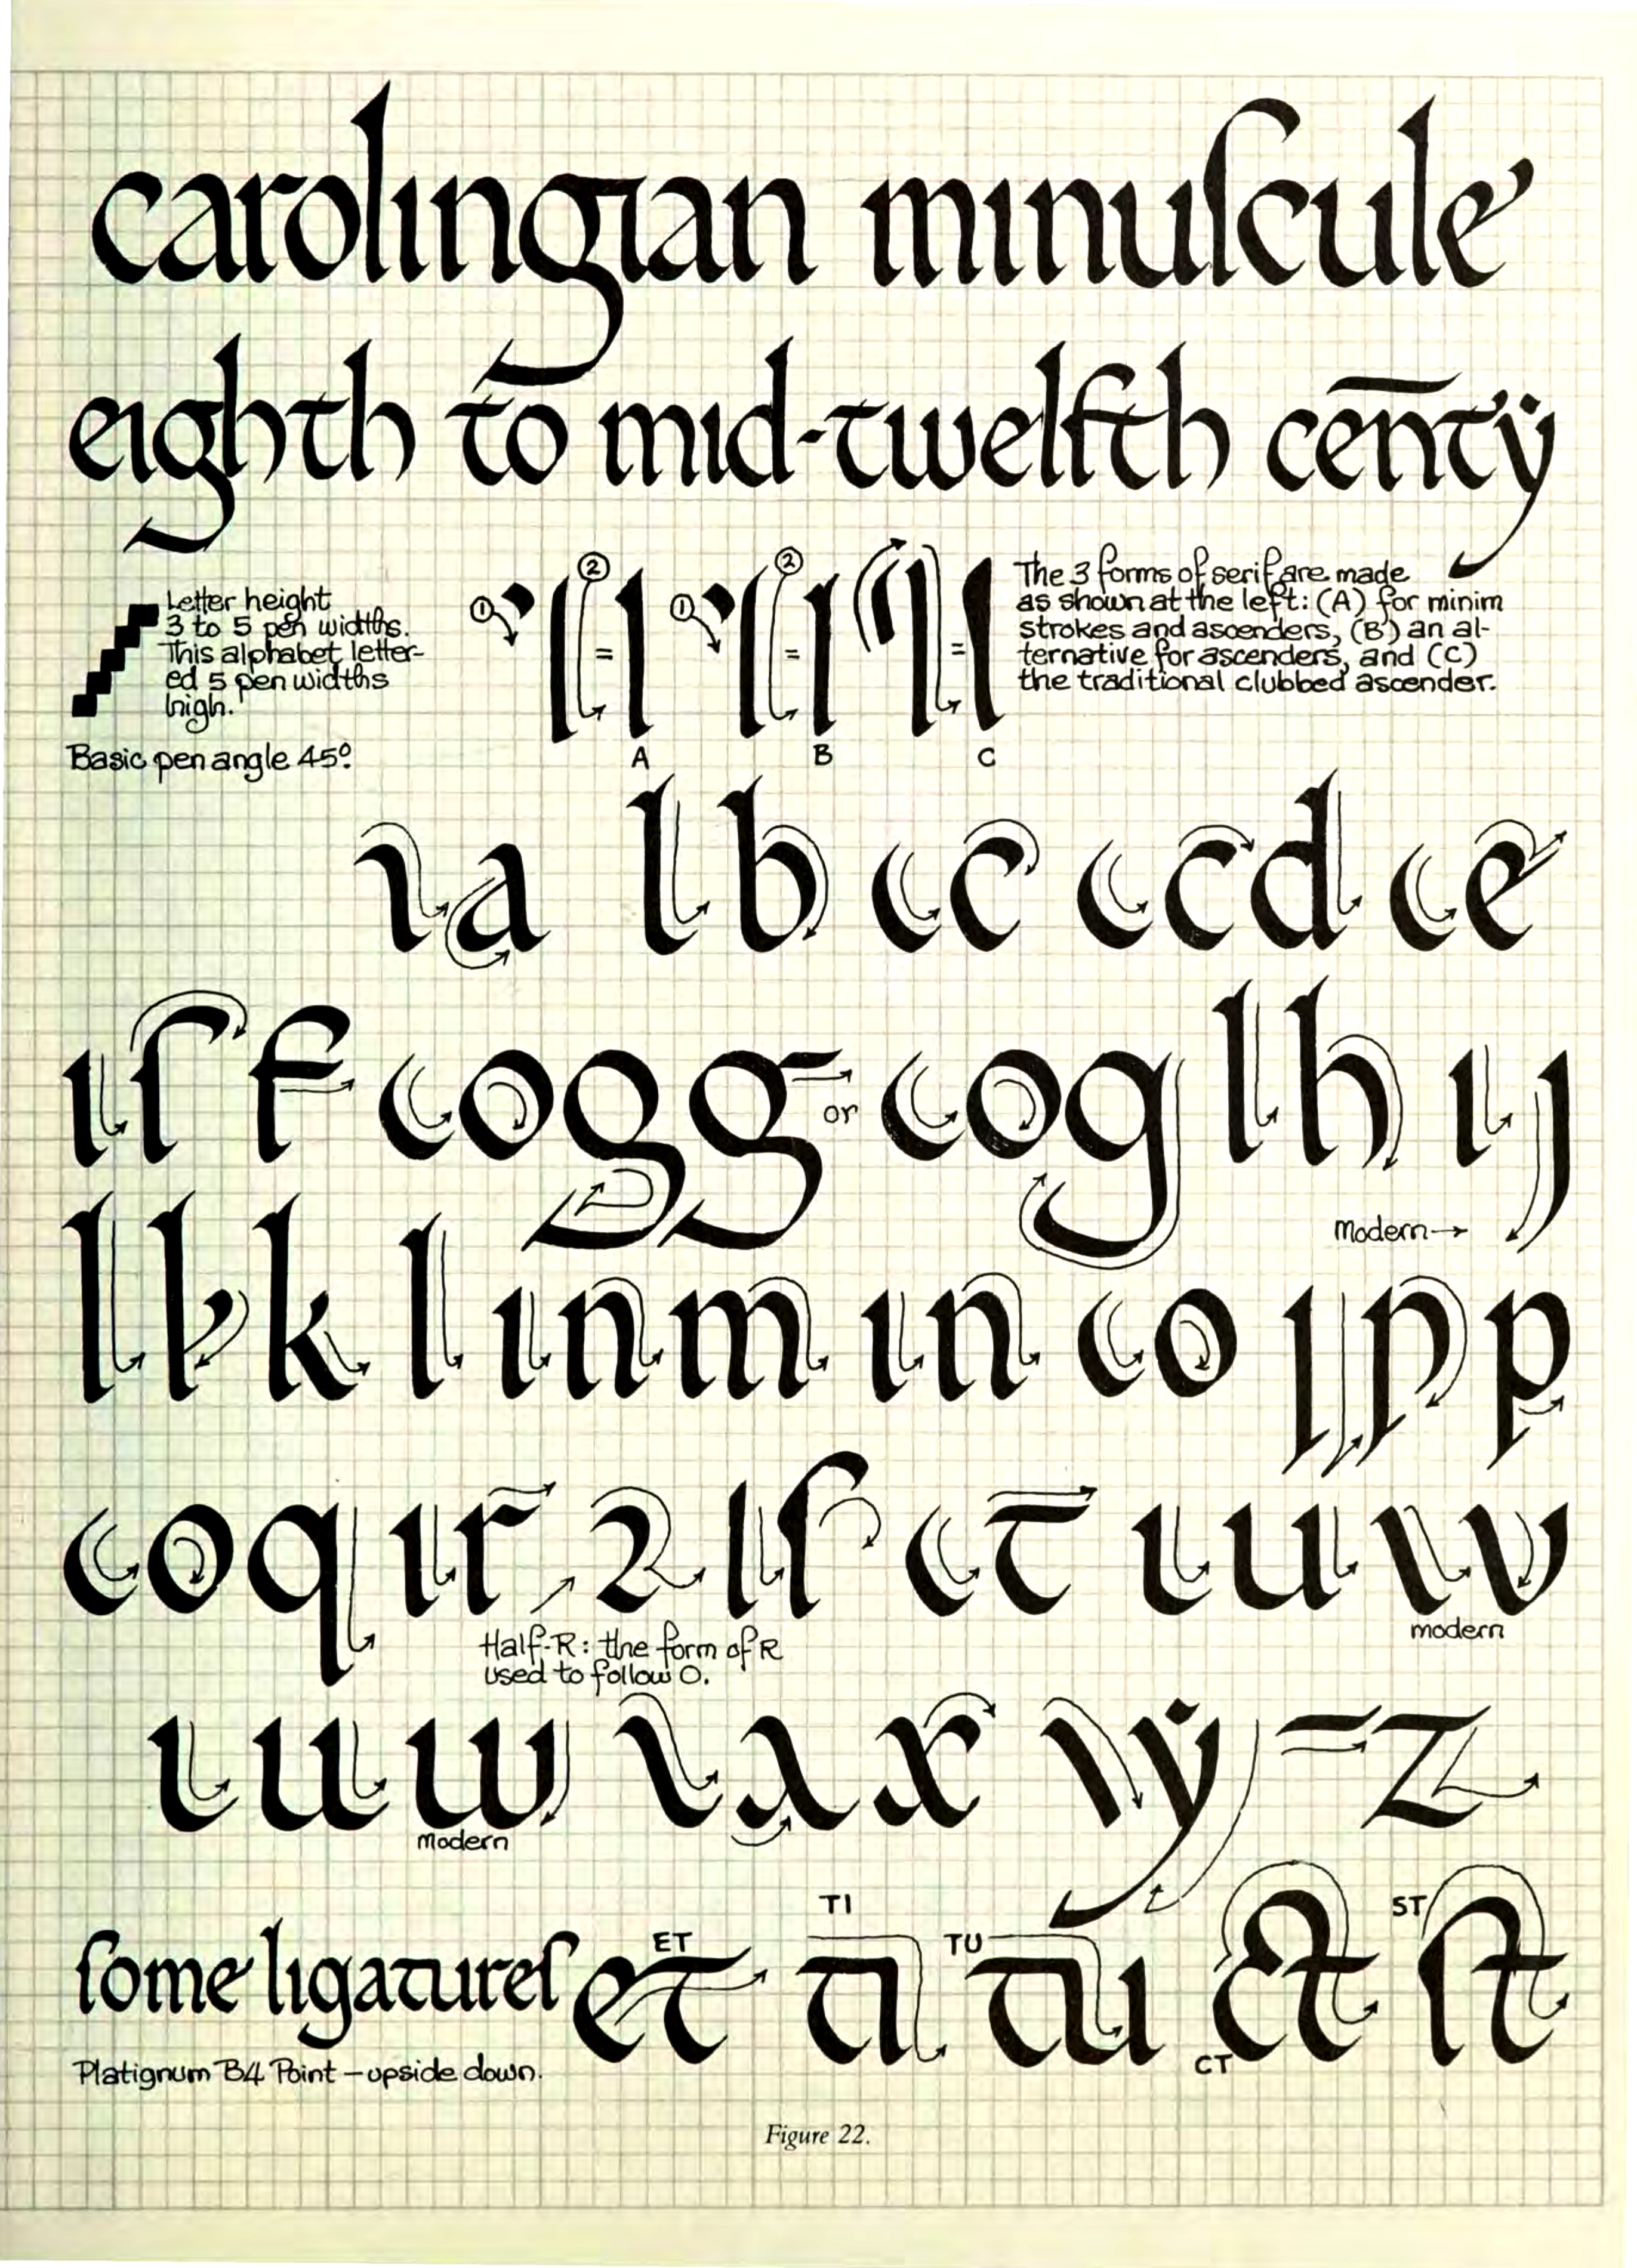 carolingian minuſcule
eighth to mid-twelfth cēntẏ
Letter height
3 to 5 pen widtths.
This alphabet letter-
ed 5 pen widths
high.
Basic pen angle 45º.
1 2 = A
1 2 = B
= C
The 3 forms of serif are made
as shown at the left: (A) for minim
strokes and ascenders, (B) an al-
ternative for ascenders, and (C)
the traditional clubbed ascender.
ı a l b c c c c d c e
ı ſ f c o g g or c o g l h ı j
Modern→
l k k l ı n m ı n c o ȷ p p
c o q ı r 2 ı ſ c t ı u ı v
Half-R: the form of R
used to follow O.
modern
ı u w ı x x ı ẏ = z
modern
ſome ligatureſ et ti tu ct ſt
ET TI TU CT ST
Platignum B4 Point – upside down.
Figure 22.